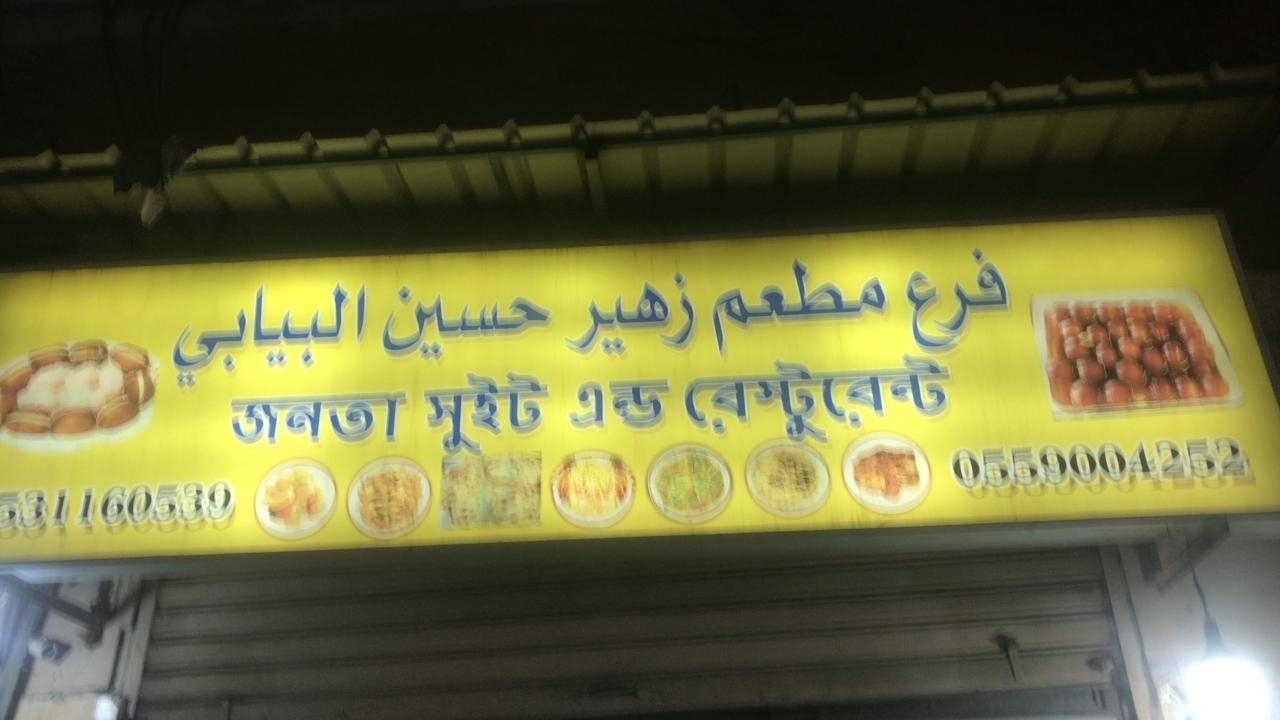 فرع مطعم زهير حسين البيابي
জনতা সুইট এন্ড রেস্টুরেন্ট
531160539 0559004252